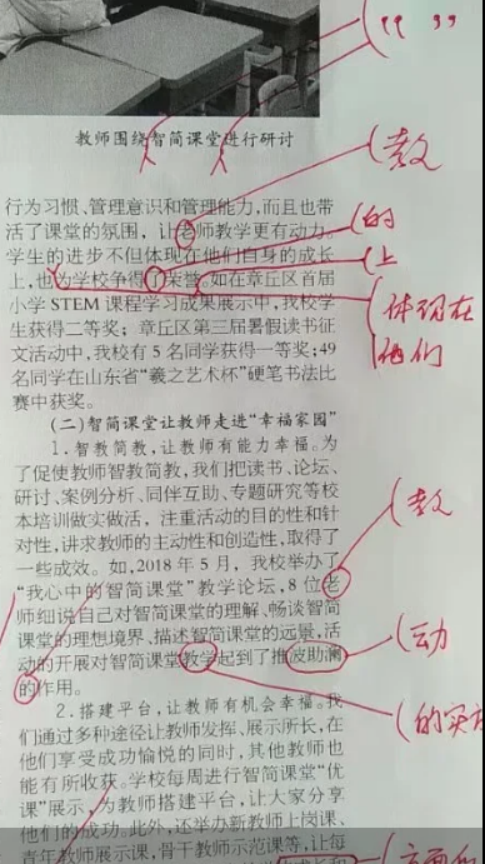 “ ”
教师围绕智简课堂进行研讨
(教
行为习惯、管理意识和管理能力,而且也带
活了课堂的氛围，让老师教学更有动力。
(的
学生的进步不但体现在他们自身的成长
(上
上,也为学校争得了荣誉。如在章丘区首届
小学 STEM 课程学习成果展示中,我校学
(体现在
生获得二等奖；章丘区第三届暑假读书征
他们
文活动中,我校有 5 名同学获得一等奖;49
名同学在山东省“羲之艺术杯”硬笔书法比
赛中获奖。
(二)智简课堂让教师走进“幸福家园”
1.智教简教,让教师有能力幸福。为
了促使教师智教简教,我们把读书、论坛、
研讨、案例分析、同伴互助、专题研究等校
(教
本培训做实做活，注重活动的目的性和针
对性,讲求教师的主动性和创造性,取得了
一些成效。如,2018 年 5 月，我校举办了
“我心中的智简课堂”教学论坛,8 位老
师细说自己对智简课堂的理解、畅谈智简
课堂的理想境界、描述智简课堂的远景,活
(动
动的开展对智简课堂教学起到了推波助澜
的作用。
2.搭建平台,让教师有机会幸福。我
(的实
们通过多种途径让教师发挥、展示所长,在
他们享受成功愉悦的同时,其他教师也
能有所收获。学校每周进行智简课堂“优
课”展示,为教师搭建平台,让大家分享
他们的成功。此外,还举办新教师上岗课、
青年教师展示课,骨干教师示范课等,让每